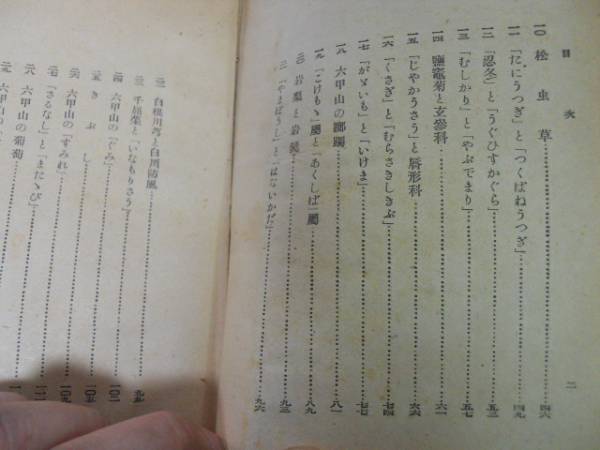 目次
一〇 松虫草……四六
一一 「たにうつぎ」と「つくばねうつぎ」……四九
一二 「忍冬」と「うぐひすかぐら」……五三
一三 「むしかり」と「やぶでまり」……五七
一四 鹽竈菊と玄參科……六一
一五 「じやかうさう」と唇形科……六六
一六 「くさぎ」と「むらさきしきぶ」……七四
一七 「がゞいも」と「いけま」……七七
一八 六甲山の躑躅……八一
一九 「こけもゝ」屬と「あくしば」屬……八九
二〇 岩梨と岩鏡……九三
二一 「やまばうし」と「はないかだ」……九六
二
二三 千振葉と「いなもりさう」……九五
二四 六甲山の「ぐみ」……一〇一
二五 きぶし……一〇五
二六 六甲山の「すみれ」……一〇九
二七 「さるなし」と「またゝび」
二八 六甲山の葡萄